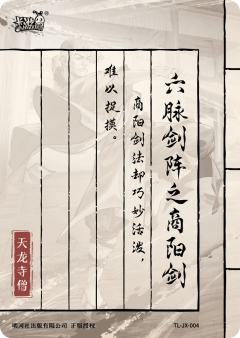 六脉剑阵之商阳剑
商阳剑法却巧妙活泼，
难以捉摸。
天龙寺僧
明河社出版有限公司 正版授权
TL-JX-004